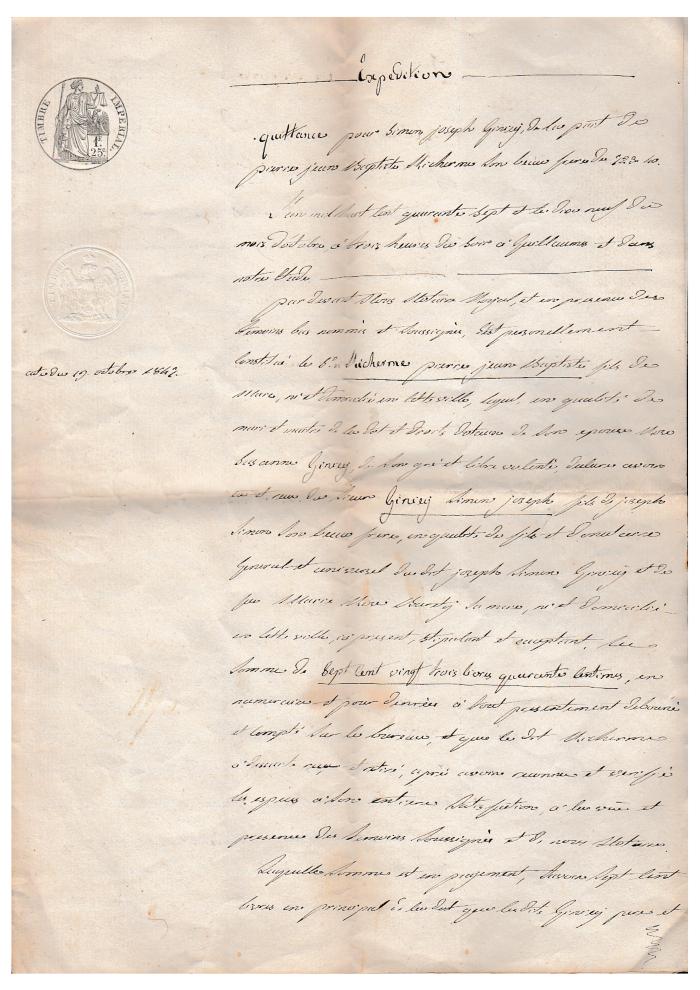 Expédition
TIMBRE IMPERIAL
1F.
25c.
quittance pour Simon joseph Giniez, de la part de
pierre jean Baptiste Micherme son beau frere de 723 40.
L'an mil huit cent quarante sept et le dix neuf du
mois d'octobre, à trois heures du soir à Guillaumes et dans
notre Etude
par devant Nous Notaire Royal, et en presence des
temoins bas nommés et soussignés, s'est personellement
constitué le Sr Micherme pierre jean Baptiste fils de
acte du 19 octobre 1847.
né et domicilié en cette ville, lequel en qualité de
mari et maitre de la dot et droits dotaux de son epouse
anne Giniez, de son gré et libre volonté, declare avoir
et reçu du Sieur Giniez Simon joseph fils de joseph
Simon son beau frere, en qualité de fils et donataire
General et universel du dit joseph Simon Giniez et de
feu Marie sa mere, né et domicilié
en cette ville, ici present stipulant et acceptant, la
somme de sept cent vingt trois livres quarante centimes, en
numeraire et pour denrées à tout presentement deboursé
et compté sur le bureau, et que le dit Micherme
à reçu et retiré, après avoir reconnu et verifié
les espèces à son entiere satisfaction, à la vue et
presence des temoins soussignés et de nous Notaire.
Laquelle somme est en payement, savoir sept cent
livres en principal de la dot que le dit Giniez pere et